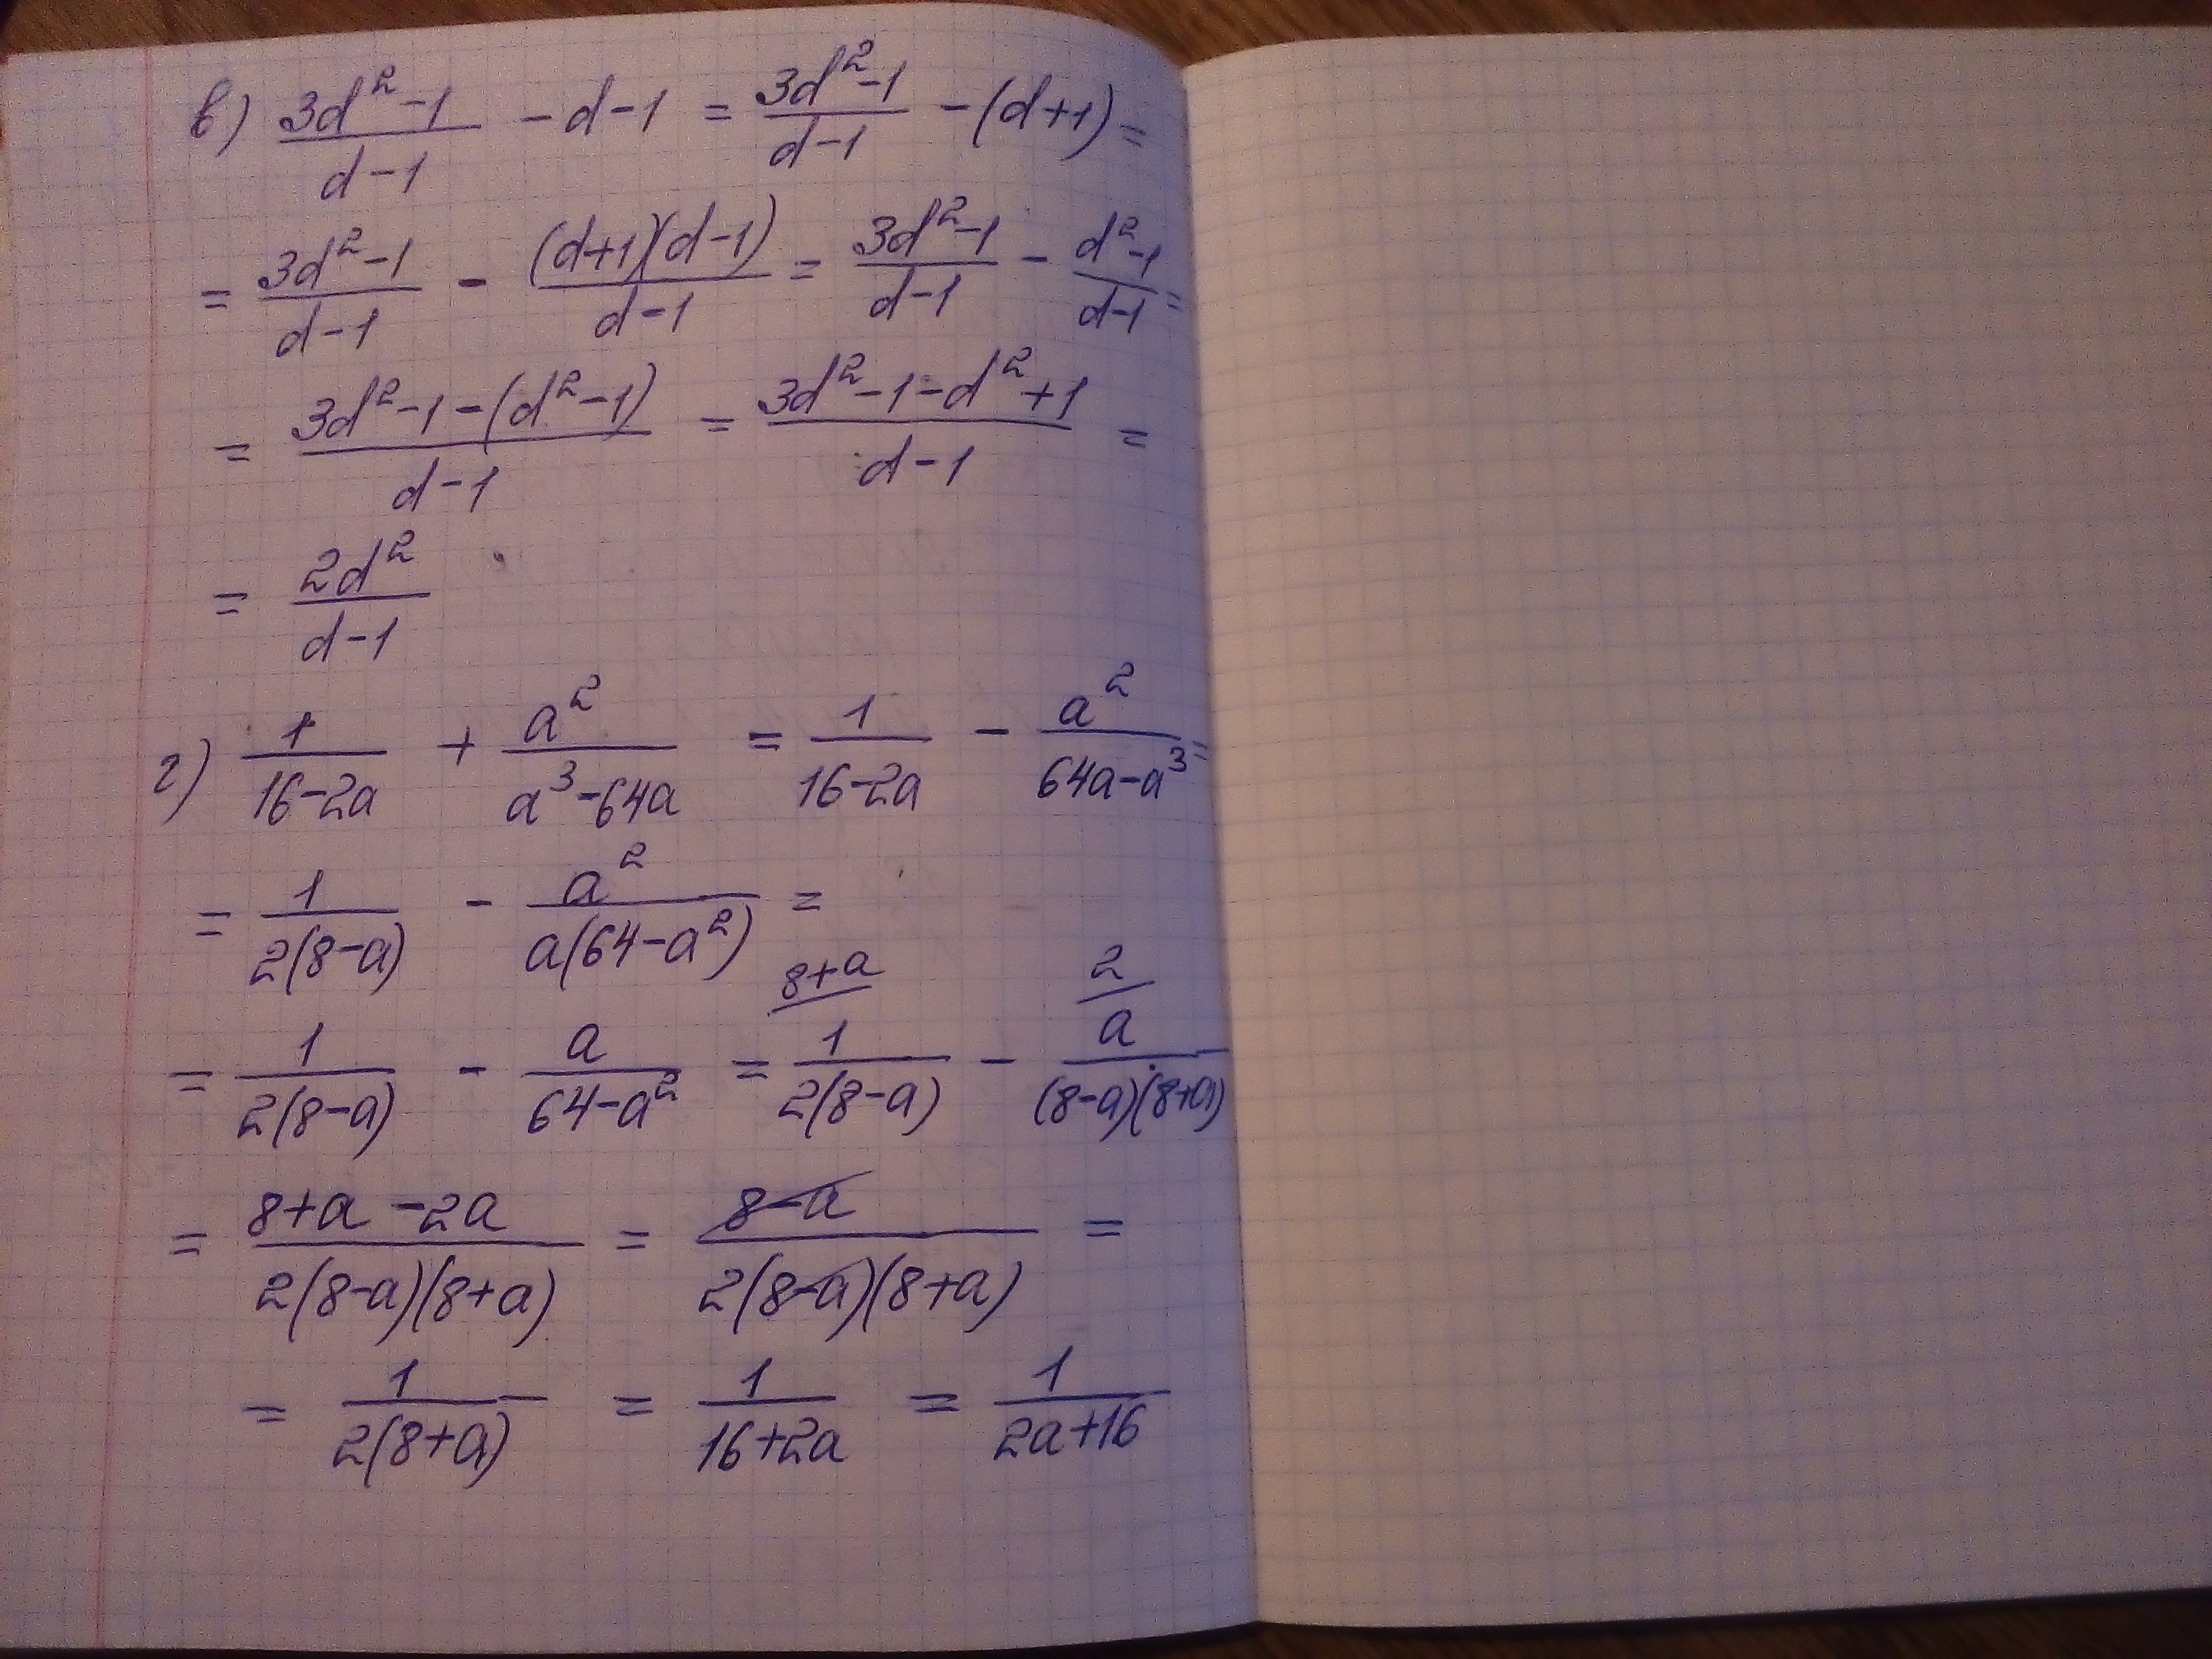 в) (3d²-1)/(d-1) - d-1 = (3d²-1)/(d-1) - (d+1) =
= (3d²-1)/(d-1) - ((d+1)(d-1))/(d-1) = (3d²-1)/(d-1) - (d²-1)/(d-1) =
= (3d²-1-(d²-1))/(d-1) = (3d²-1-d²+1)/(d-1) =
= 2d²/(d-1)
г) 1/(16-2a) + a²/(a³-64a) = 1/(16-2a) - a²/(64a-a³) =
= 1/(2(8-a)) - a²/(a(64-a²)) =
8+a 2
= 1/(2(8-a)) - a/(64-a²) = 1/(2(8-a)) - a/((8-a)(8+a))
= (8+a-2a)/(2(8-a)(8+a)) = (8-a)/(2(8-a)(8+a)) =
= 1/(2(8+a)) = 1/(16+2a) = 1/(2a+16)